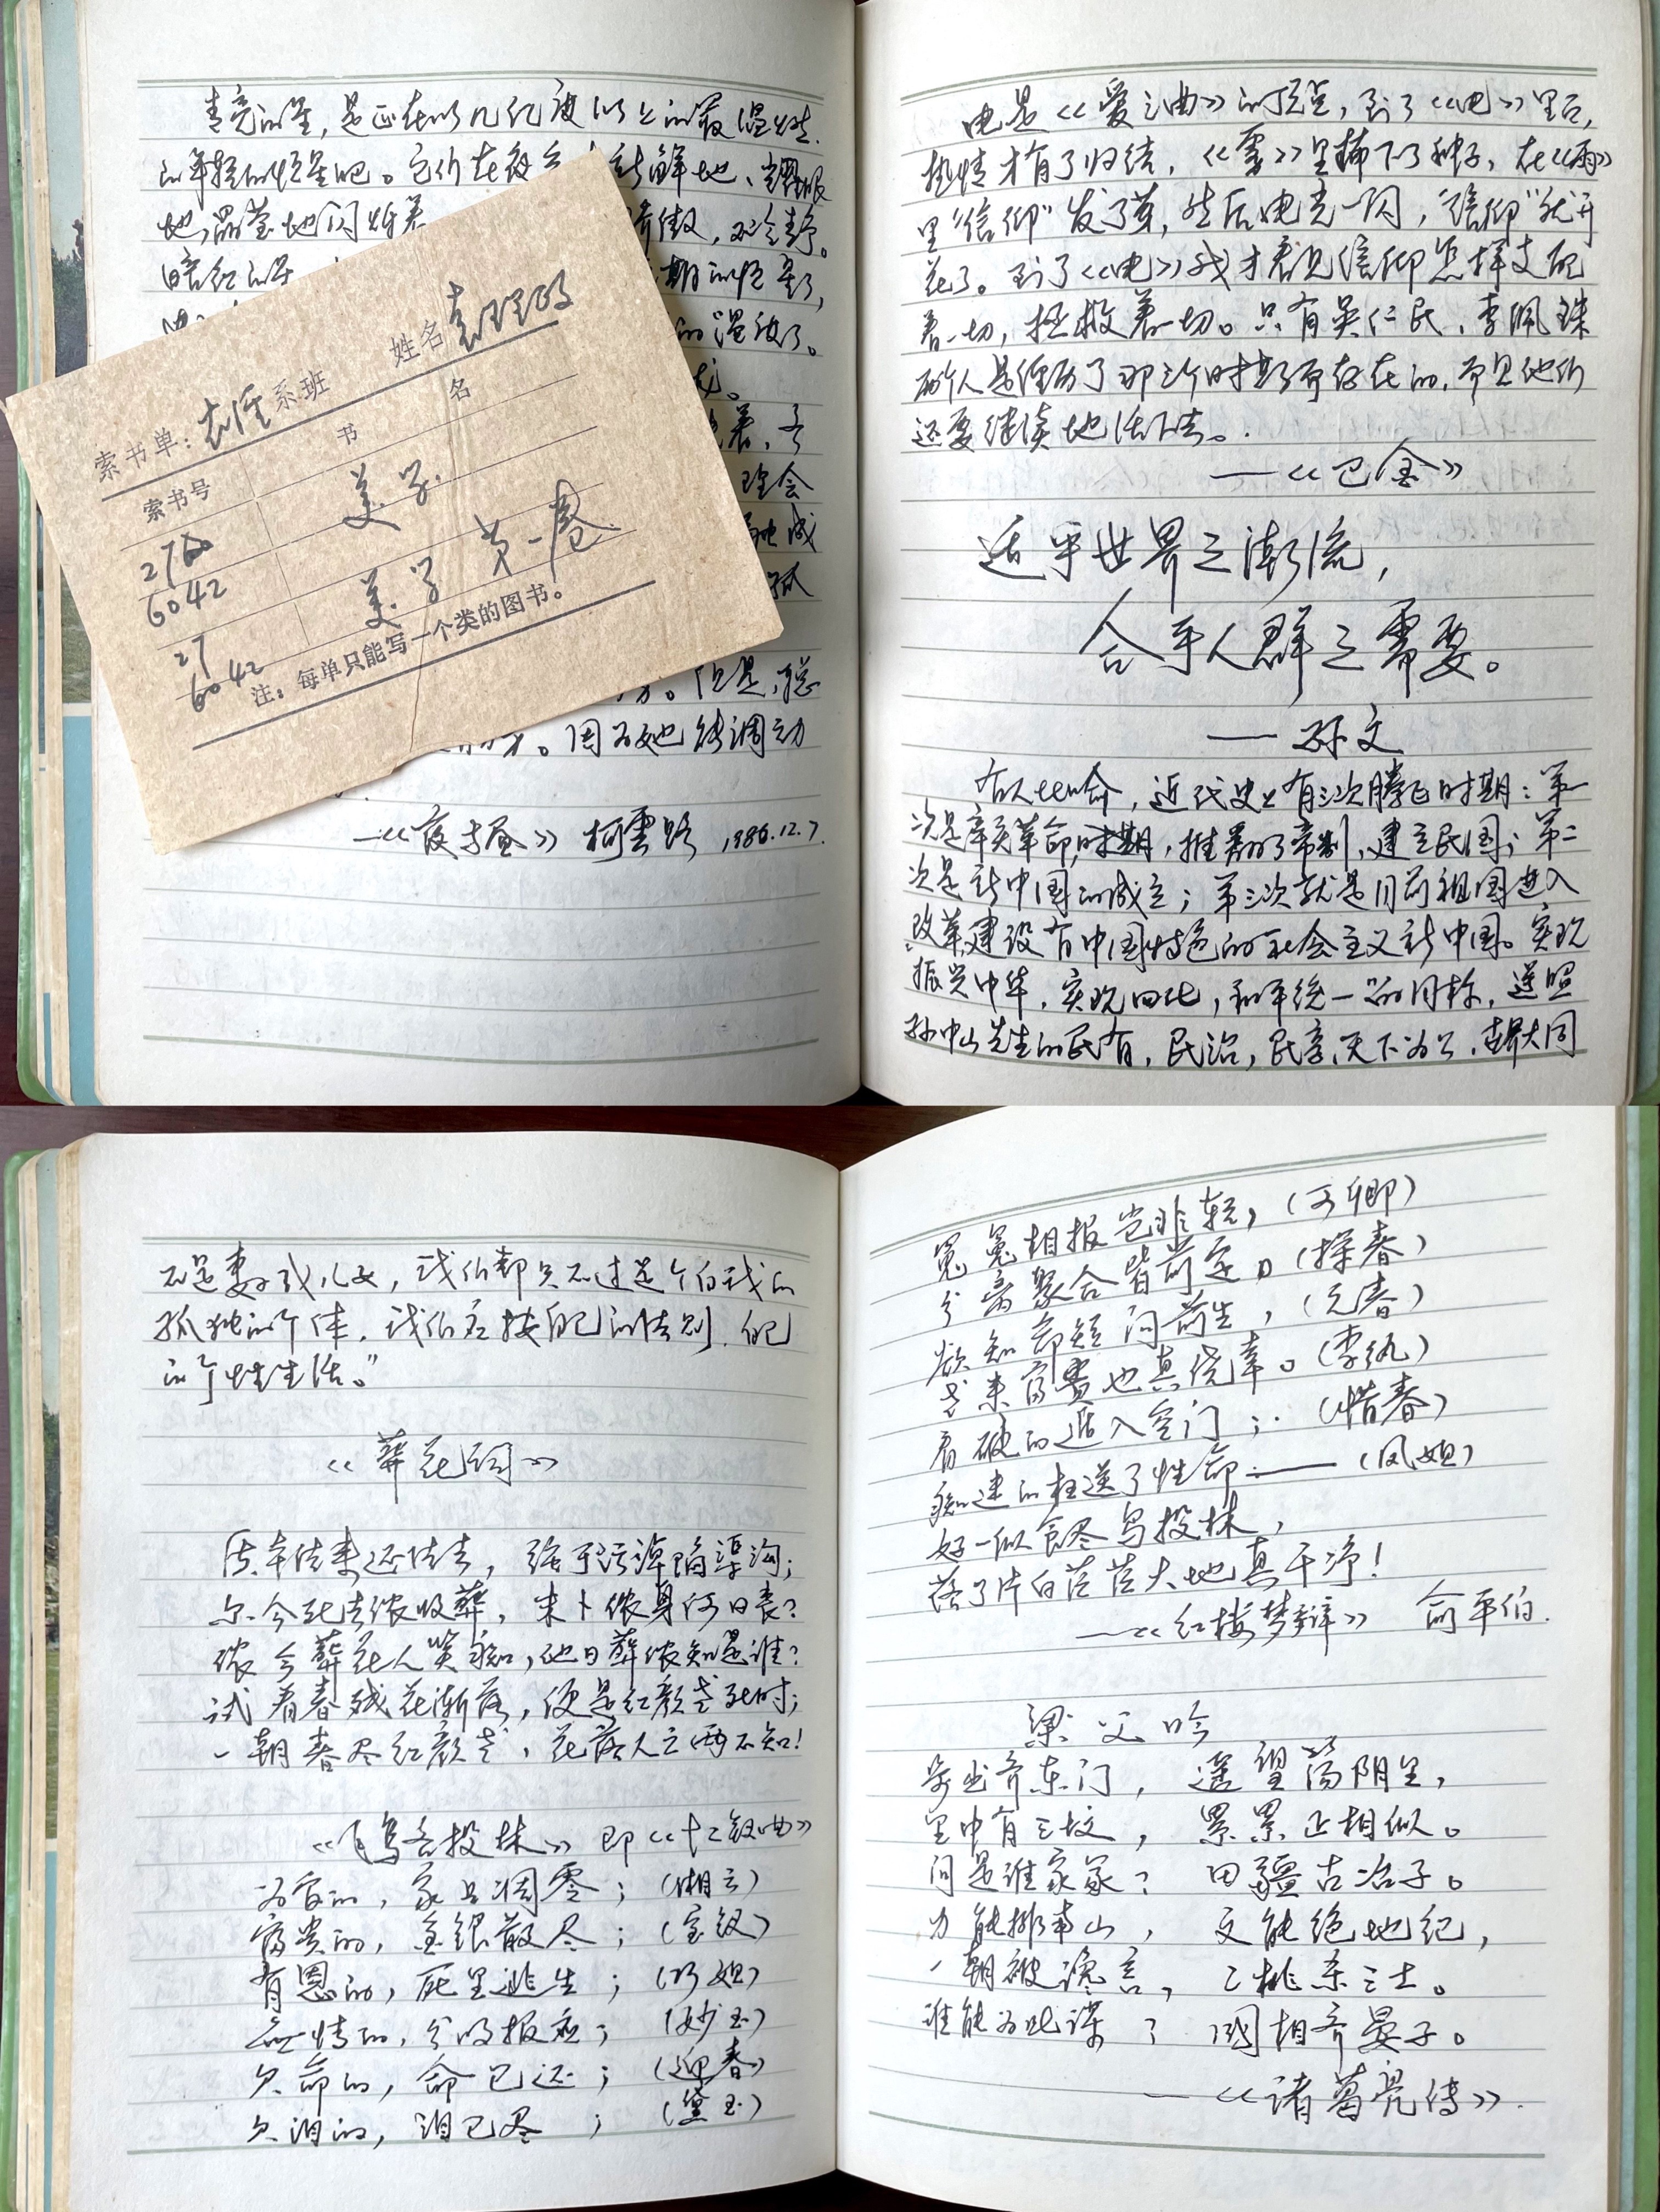 青亮的星，是正在以几亿度以上的高温燃
的年轻的恒星吧。它们在夜
新鲜地、耀眼
地，晶莹地闪烁着
骄傲，不冷静。
暗红的星
期的恒星了，
的温度了。
着，
理会
融成
孤
。但是，聪
。因为她能调动
—《夜与昼》柯云路 1986.12.7.
索书单：政经系班 姓名 袁理明
索书号 书 名
270
6042 美学.
27
6042 美学 第一卷.
注：每单只能写一个类的图书。
电是《爱之曲》的顶点，到了《电》里后，
热情才有了归结，《雾》里播下了种子，在《雨》
里“信仰”发了芽，然后电光一闪，“信仰”就开
花了。到了《电》我才看见信仰怎样支配
着一切，拯救着一切。只有吴仁民、李佩珠
两个人是经历了那三个时期而存在的，而且他们
还要继续地活下去。.
—《巴金》
适乎世界之潮流，
合乎人群之需要。
— 孙文
有人比喻，近代史上有三次腾飞时期：第一
次是辛亥革命时期，推翻了帝制、建立民国；第二
次是新中国的成立；第三次就是目前祖国进入
改革，建设有中国特色的社会主义新中国。实现
振兴中华，实现四化，和平统一”的目标，遵照
孙中山先生的民有，民治，民享，天下为公，世界大同
不是妻子或儿女，我们都只不过是个自我的
孤独的个体，我们应按自己的法则，自己
的个性生活。”
《葬花词》
洁本洁来还洁去，强于污淖陷渠沟；
尔今死去侬收葬，未卜侬身何日丧？
侬今葬花人笑痴，他日葬侬知是谁？
试看春残花渐落，便是红颜老死时；
一朝春尽红颜老，花落人亡两不知！
《飞鸟各投林》即《十二钗曲》
为官的，家业凋零；（湘云）
富贵的，金银散尽；（宝钗）
有恩的，死里逃生；（巧姐）
无情的，分明报应；（妙玉）
欠命的，命已还；（迎春）
欠泪的，泪已尽；（黛玉）
冤冤相报岂非轻，（可卿）
分离聚合皆前定。（探春）
欲知命短问前生，（元春）
老来富贵也真侥幸。（李纨）
看破的遁入空门；.（惜春）
痴迷的枉送了性命.——（凤姐）
好一似食尽鸟投林，
落了片白茫茫大地真干净！
—《红楼梦辩》 俞平伯.
梁父吟
步出齐东门，遥望荡阴里，
里中有三坟，累累正相似。
问是谁家冢？田疆古冶子。
力能排南山，文能绝地纪，
一朝被谗言，二桃杀三士。
谁能为此谋？国相齐晏子。
—《诸葛亮传》.